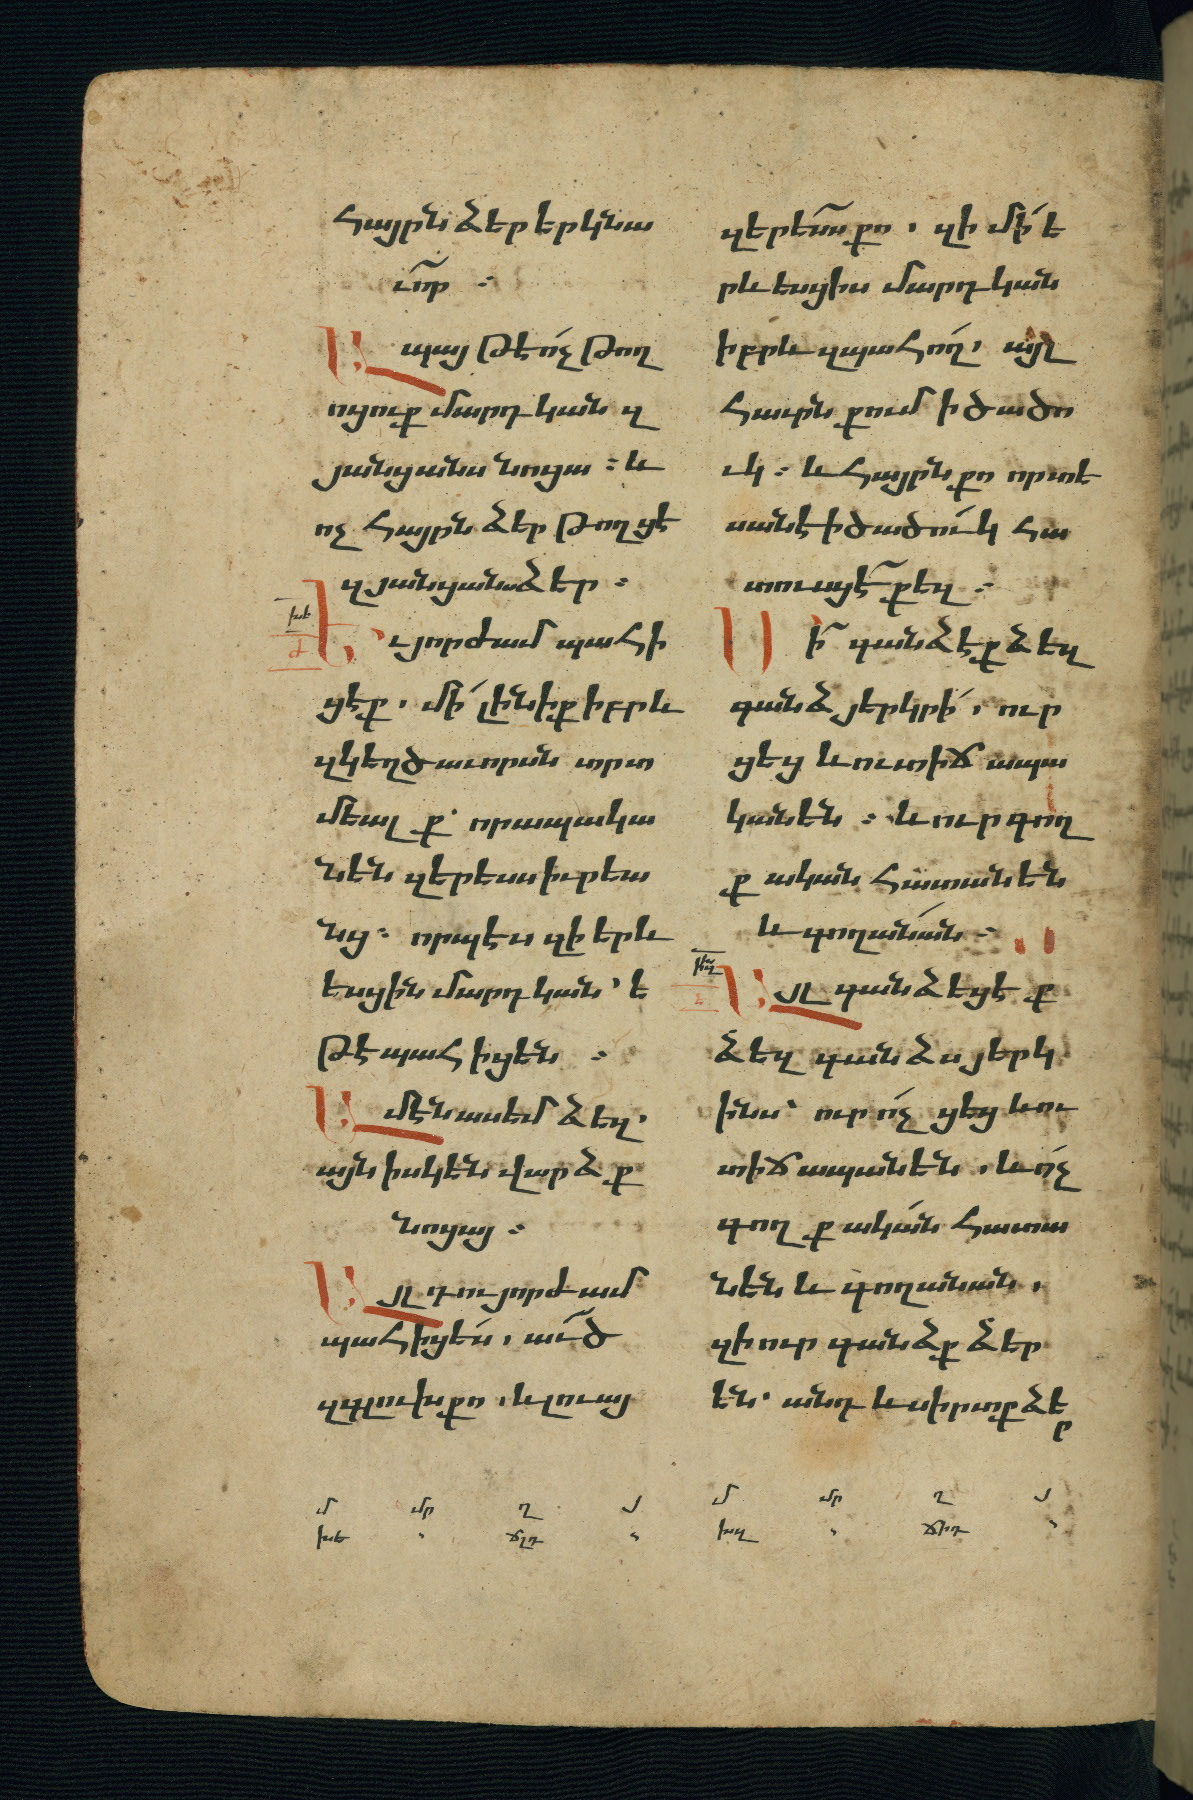 Հայրն ձեր երկնա
ւո՜ր ։
Ապայ թէ ո՛չ թող
ուցուք մարդկան զ
յանցանս նոցա ։ և
ոչ հայրն ձեր թողցէ
զյանցանս ձեր ։
խե
ժ
Եւ յորժամ պահի
ցէք, մի՛ լինիք իբրև
զկեղծաւորսն տրտ
մեալք՝ որ ապակա
նեն զերեսս իւրեա
նց ։ որպէս զի երև
եսցին մարդկան՝ ե
թէ պահիցեն ։
Ամէն ասեմ ձեզ՝
այն իսկ են վարձք
նոցայ ։
Այլ դու յորժամ
պահիցես, ա՜ւծ
զգլուխ քո, և լուայ
մ մր ղ յ
խե ճլդ
զերե՜սս քո, զի մի՛ ե
րևեսցիս մարդկան
իբրև զպահո՛ղ, այլ
հաւրն քում ի ծածո
ւկ ։ և հայրն քո որ տե
սանէ ի ծածո՛ւկ հա
տուսցէ՜ քեզ ։
Մի՜ գանձէք ձեզ
գանձ յերկրի՛, ուր
ցեց և ուտիճ ապա
կանեն ։ և ուր գող
ք ական հատանեն
և գողանա՛ն ։
խզ
ե
Այլ գանձեցէք
ձեզ գանձս յերկ
ինս՝ ուր ո՛չ ցեց և ու
տիճ ապանեն, և ո՛չ
գողք ակա՛ն հատա
նեն և գողանան,
զի ուր գանձք ձեր
են՝ անդ և սիրտք ձե
ր
մ մր ղ յ
խզ